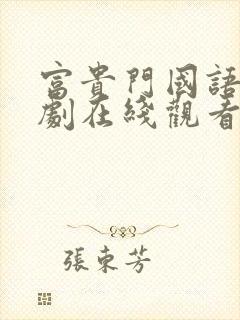 富貴門國語
劇在綫觀看
張東芳